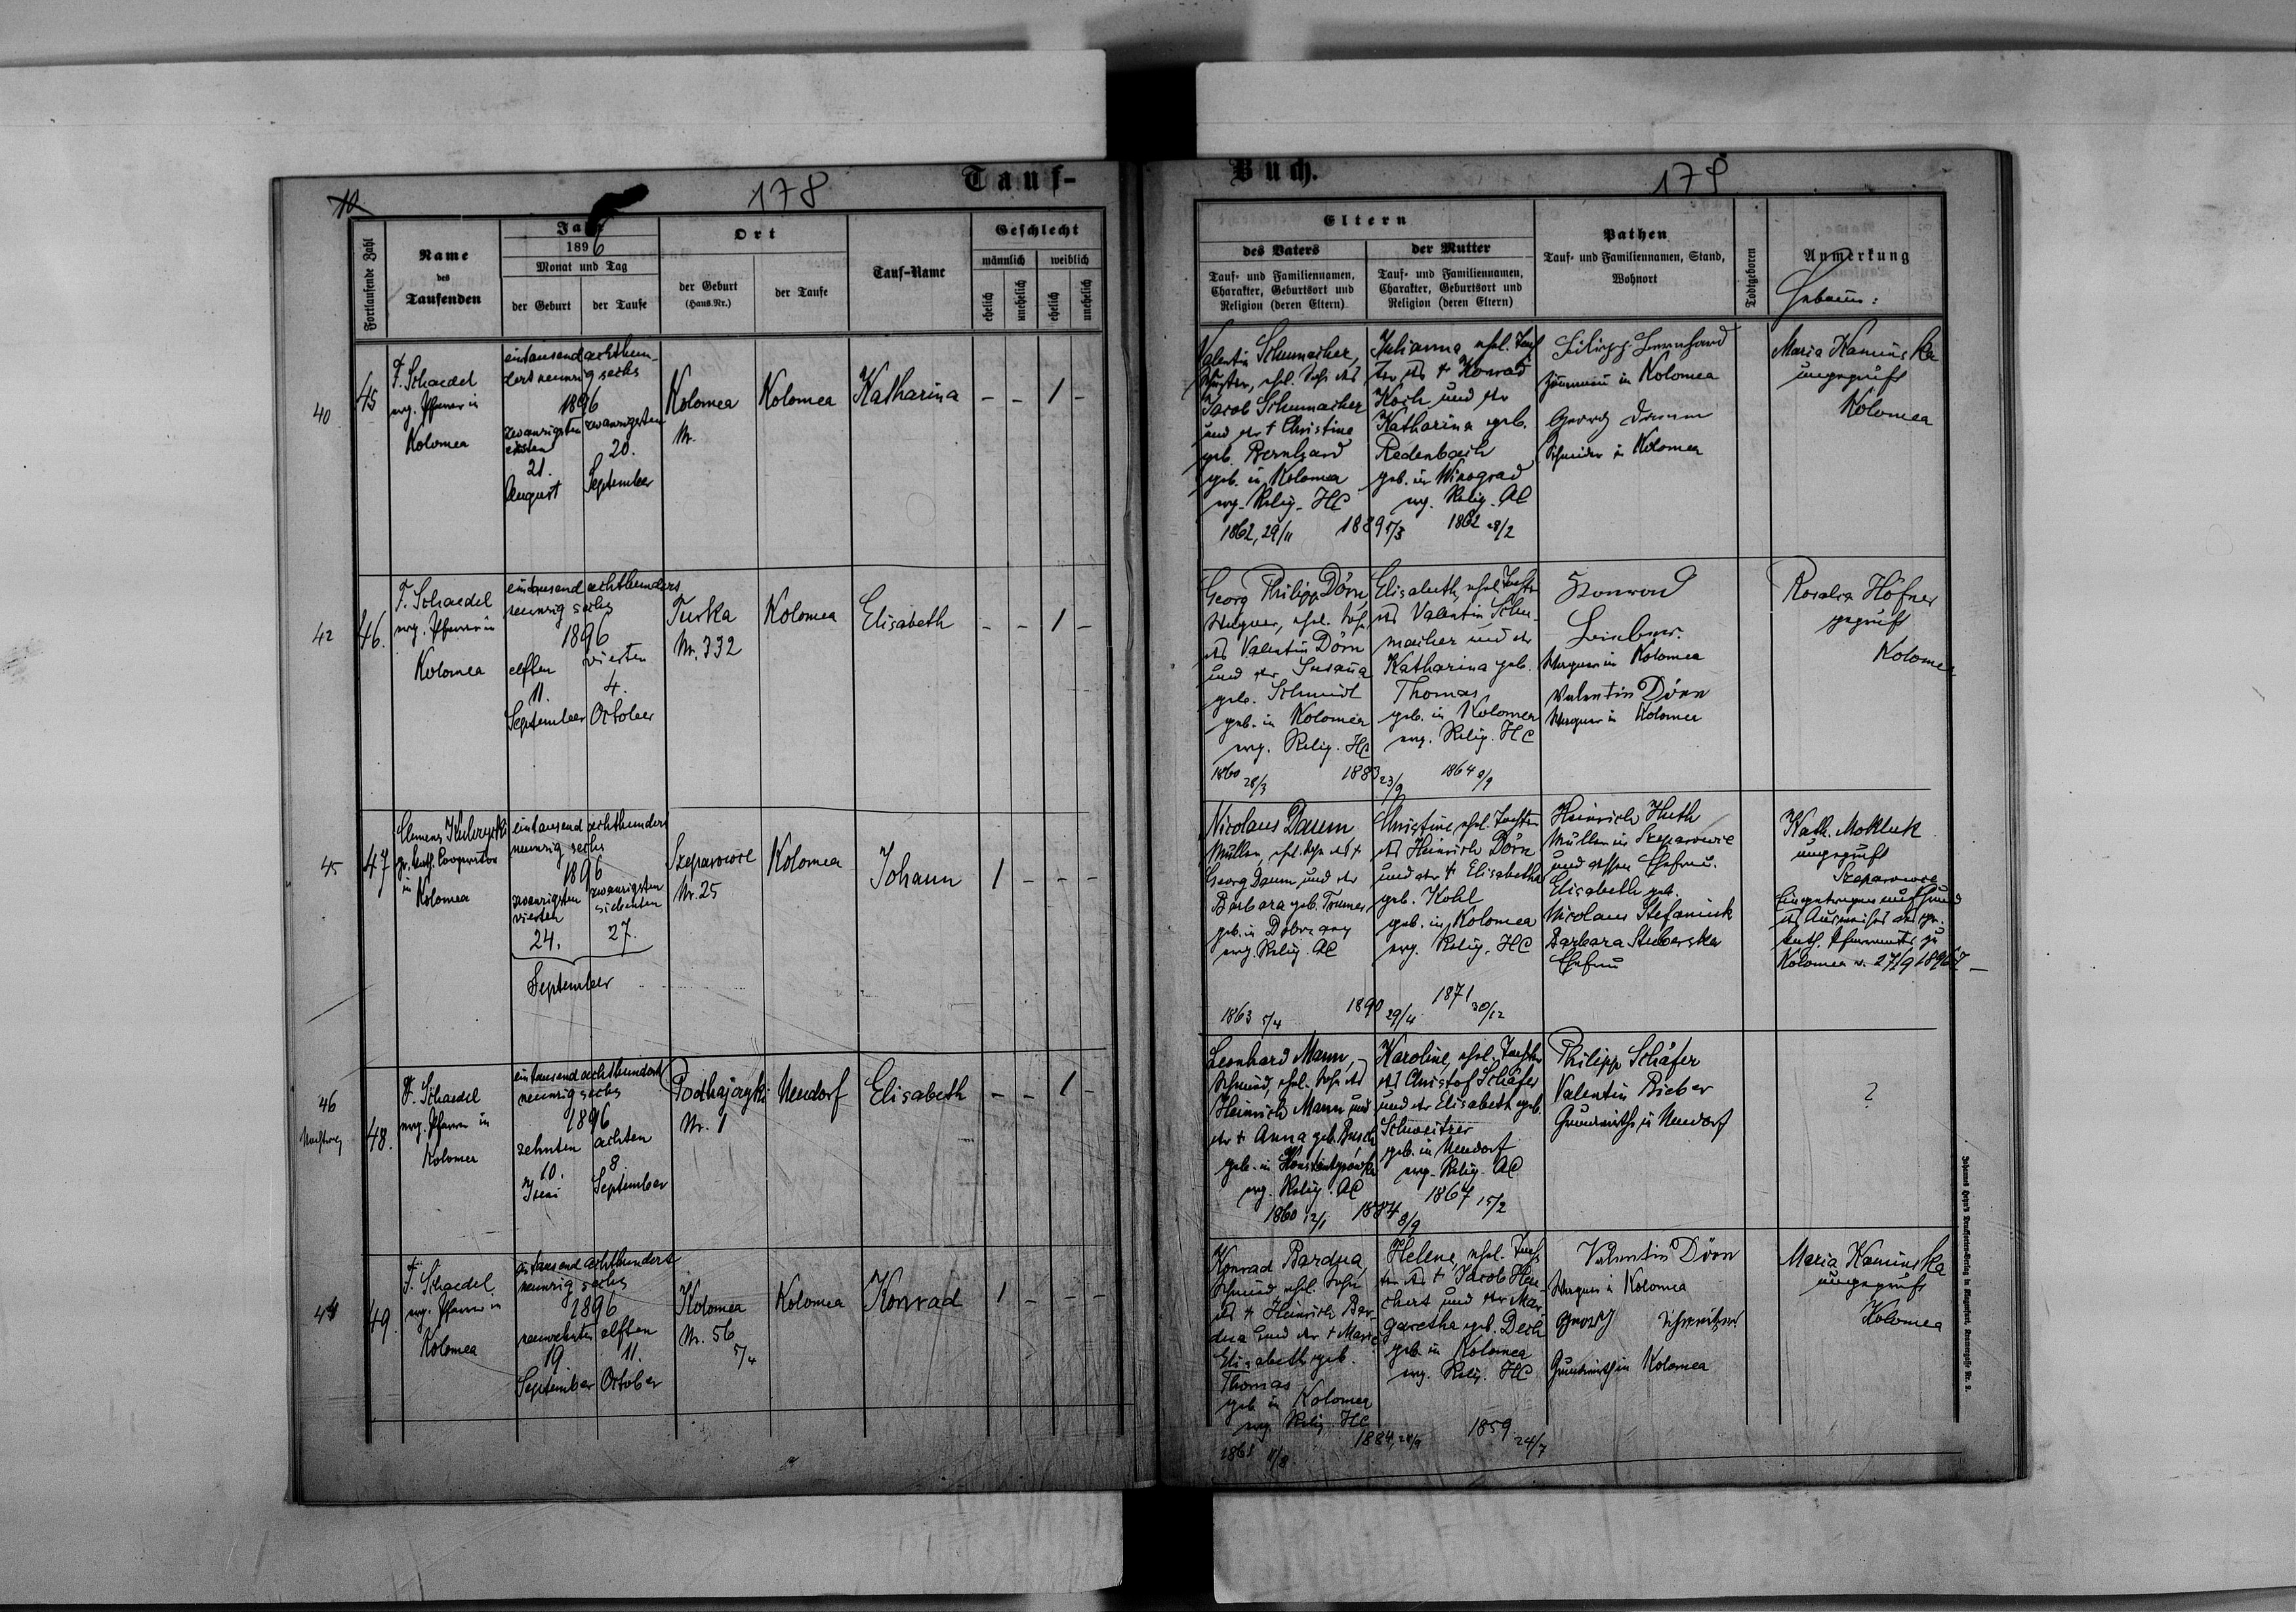 10
178
Tauf-
Fortlaufende Zahl
Name
des
Taufenden
Jahr
1896
Monat und Tag
der Geburt
der Taufe
Ort
der Geburt
(Haus-Nr.)
der Taufe
Tauf-Name
Geschlecht
männlich
weiblich
ehelich
unehelich
ehelich
unehelich
40
45
F. Schaedel
evg. Pfarrer in
Kolomea
eintausend achthun-
dert neunzig sechs
1896
zwanzigsten
ersten
21.
August
zwanzigsten
20.
September
Kolomea
Nr.
Kolomea
Katharina
- - 1 -
42
46.
F. Schaedel
evg. Pfarrer in
Kolomea
eintausend achthundert
neunzig sechs
1896
elften
11.
September
vierten
4.
October
Turka
Nr. 332
Kolomea
Elisabeth
- - 1 -
45
47
Clemens
gr. kath. Cooperator
in
Kolomea
eintausend achthundert
neunzig sechs
1896
zwanzigsten
vierten
24.
zwanzigsten
siebenten
27.
September
Szeparowce
Nr. 25
Kolomea
Johann
1 - - -
46
48.
F. Schaedel
evg. Pfarrer in
Kolomea
eintausend achthundert
neunzig sechs
1896
zehnten
10.
achten
8.
September
Podhajczyki
Nr. 1
Neudorf
Elisabeth
- - 1 -
49.
F. Schaedel
evg. Pfarrer in
Kolomea
eintausend achthundert
neunzig sechs
1896
neunzehnten
19
September
elften
11.
October
Kolomea
Nr. 56
5/4
Kolomea
Konrad
1 - - -
Buch.
179
Eltern
des Vaters
Tauf- und Familiennamen,
Charakter, Geburtsort und
Religion (deren Eltern)
der Mutter
Tauf- und Familiennamen,
Charakter, Geburtsort und
Religion (deren Eltern)
Pathen
Tauf- und Familiennamen, Stand,
Wohnort
Todtgeboren
Anmerkung
Hebamme:
Valentin Schumacher,
Schuster, ehel. Sohn des
Jacob Schumacher
und der † Christine
geb. Bernhard
geb. in Kolomea
evg. Relig. HC
1862, 29/11
1889 5/3
Julianna ehel. Toch
ter des † Konrad
Koch und der
Katharina geb.
Redenbach
geb. in Winograd
evg. Relig. AC
1862 28/2
Filipp Bernhard
Zimmermann in Kolomea
Georg Daum
Schneider in Kolomea
Maria Kaminska
ungeprüft
Kolomea
Georg Philipp Dörn
Wagner, ehel. Sohn
des Valentin Dörn
und der Susanna
geb. Schmidt
geb. in Kolomea
evg. Relig. HC
1860 28/3
1883 23/9
Elisabeth, ehel. Tochter
des Valentin Schu-
macher und der
Katharina geb.
Thomas
geb. in Kolomea
evg. Relig. HC
1864 9/9
Konrad
Wagner in Kolomea
Valentin Dörn
Wagner in Kolomea
Rosalia Höfner
geprüft
Kolomea
Nicolaus Daum
Müller, ehel. Sohn des †
Georg Daum und der
Barbara geb.
geb. in Dobrzany
evg. Relig. AC
1863 5/4
1890 29/4
Christine, ehel. Tochter
des Heinrich Dörn
und der † Elisabetha
geb. Kohl
geb. in Kolomea
evg. Relig. HC
1871 30/12
Heinrich Huth
Müller in Szeparowce
und dessen Ehefrau
Elisabeth geb.
Nicolaus Stefaniuk
Barbara Stuberska
Ehefrau
Kath. Mokluk
ungeprüft
Szeparowce
Eingetragen auf Grund
des Ausweises des gr.
kath. Pfarramtes zu
Kolomea v. 27/9 1896
Leonhard Mann,
Schmied, ehel. Sohn des
Heinrich Mann und
der † Anna geb. Busch
geb. in Konstantynowka
evg. Relig. AC
1860 12/1
1884 8/9
Karoline, ehel. Tochter
des Christof Schäfer
und der Elisabeth geb.
Schweitzer
geb. in Neudorf
evg. Relig. AC
1867 15/2
Philipp Schäfer
Valentin Bieber
Grundwirthe in Neudorf
?
Konrad Bardua,
Schmied, ehel. Sohn
des † Heinrich Bar-
dua und der † Marie
Elisabeth geb.
Thomas
geb. in Kolomea
evg. Relig. HC
1861 11/8
Helene, ehel. Toch
ter des † Jacob Heu-
chert und der Mar-
garetha geb. Dech
geb. in Kolomea
evg. Relig. HC
1859 24/7
Valentin Dörn
Wagner in Kolomea
Georg Schweitzer
Grundwirth in Kolomea
Maria Kaminska
ungeprüft
Kolomea